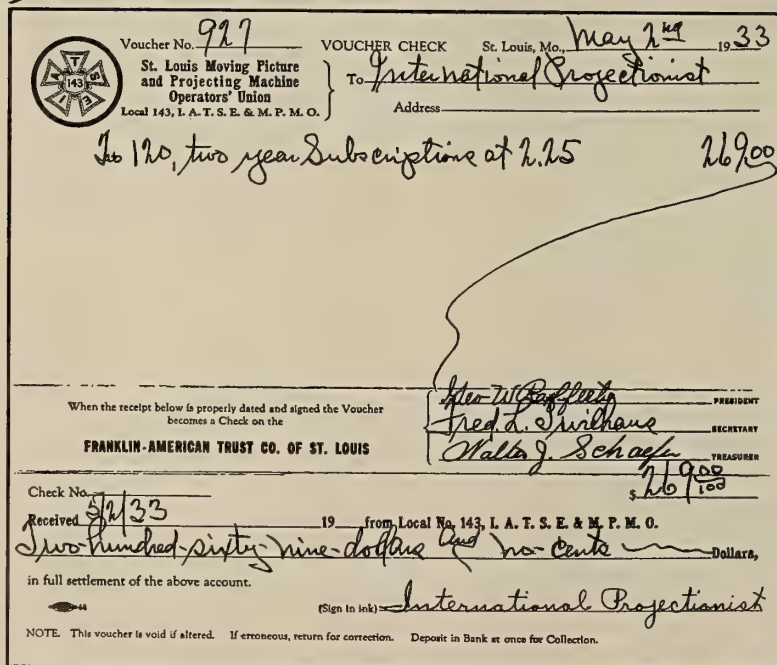 Voucher No. 927 VOUCHER CHECK St. Louis, Mo., May 2nd 1933
I A T S E 143
St. Louis Moving Picture
and Projecting Machine
Operators' Union
Local 143, I. A. T. S. E. & M. P. M. O.
To International Projectionist
Address
To 120, two year Subscriptions at 2.25 269.00
When the receipt below is properly dated and signed the Voucher
becomes a Check on the
FRANKLIN-AMERICAN TRUST CO. OF ST. LOUIS
Geo W PRESIDENT
Fred. L. SECRETARY
Walter J. Schaefer TREASURER
$269 00/100
Check No.
Received 5/2/33 19 from Local No. 143, I. A. T. S. E. & M. P. M. O.
Two-hundred-sixty-nine-dollars and no-cents Dollars,
in full settlement of the above account.
(Sign in ink) International Projectionist
NOTE. This voucher is void if altered. If erroneous, return for correction. Deposit in Bank at once for Collection.